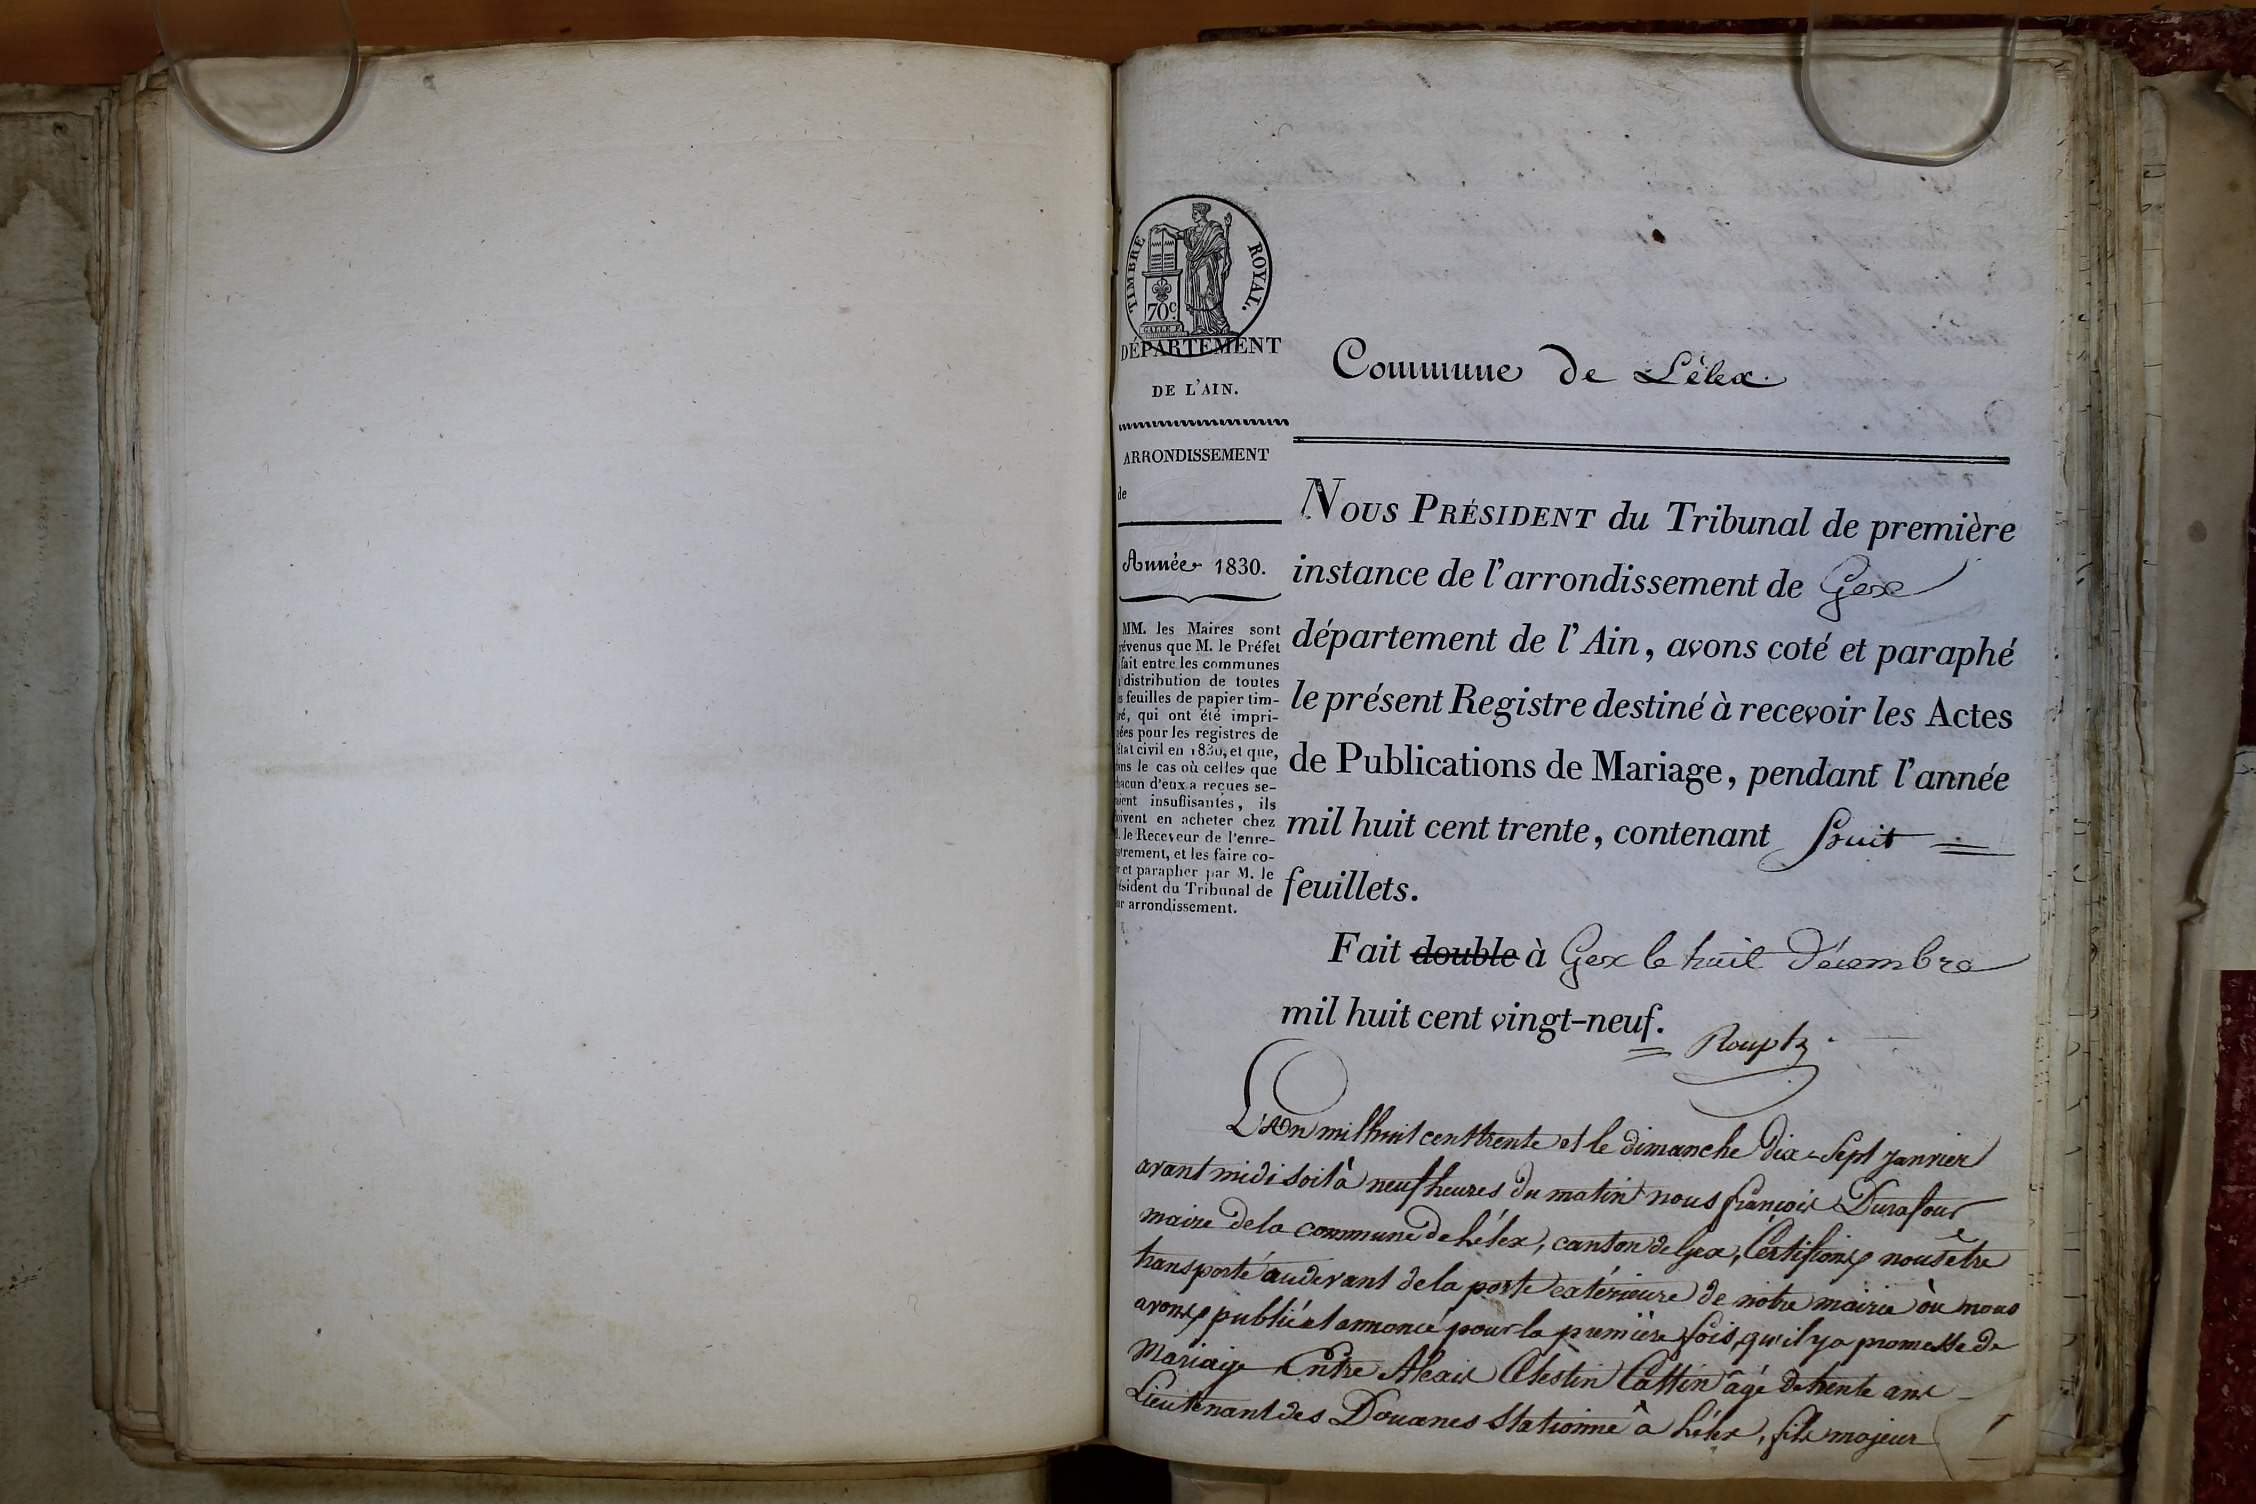 TIMBRE ROYAL.
70 c.
DÉPARTEMENT
DE L'AIN.
ARRONDISSEMENT
de
Année 1830.
MM. les Maires sont
révenus que M. le Préfet
fait entre les communes
distribution de toutes
s feuilles de papier tim-
ré, qui ont été impri-
ées pour les registres de
état civil en 1830, et que,
ns le cas où celles que
hacun d'eux a reçues se-
aient insuffisantes, ils
oivent en acheter chez
. le Receveur de l'enre-
strement, et les faire co-
r et parapher par M. le
ésident du Tribunal de
ur arrondissement.
Commune de Lélex.
NOUS PRÉSIDENT du Tribunal de première
instance de l'arrondissement de Gex
département de l'Ain, avons coté et paraphé
le présent Registre destiné à recevoir les Actes
de Publications de Mariage, pendant l'année
mil huit cent trente, contenant huit
feuillets.
Fait double à Gex le huit Décembre
mil huit cent vingt-neuf.
Rouph
L'An mil huit cent trente et le dimanche dix-sept janvier
avant midi soit à neuf heures du matin nous françois Durafour
maire de la commune de Lélex, canton de Gex, Certifions nous être
transporté au devant de la porte extérieure de notre mairie où nous
avons publié et annoncé pour la première fois, qu'il y a promesse de
Mariage Entre Alexis Célestin Cattin âgé de trente ans
Lieutenant des Douanes stationné à Lélex, fils majeur
1